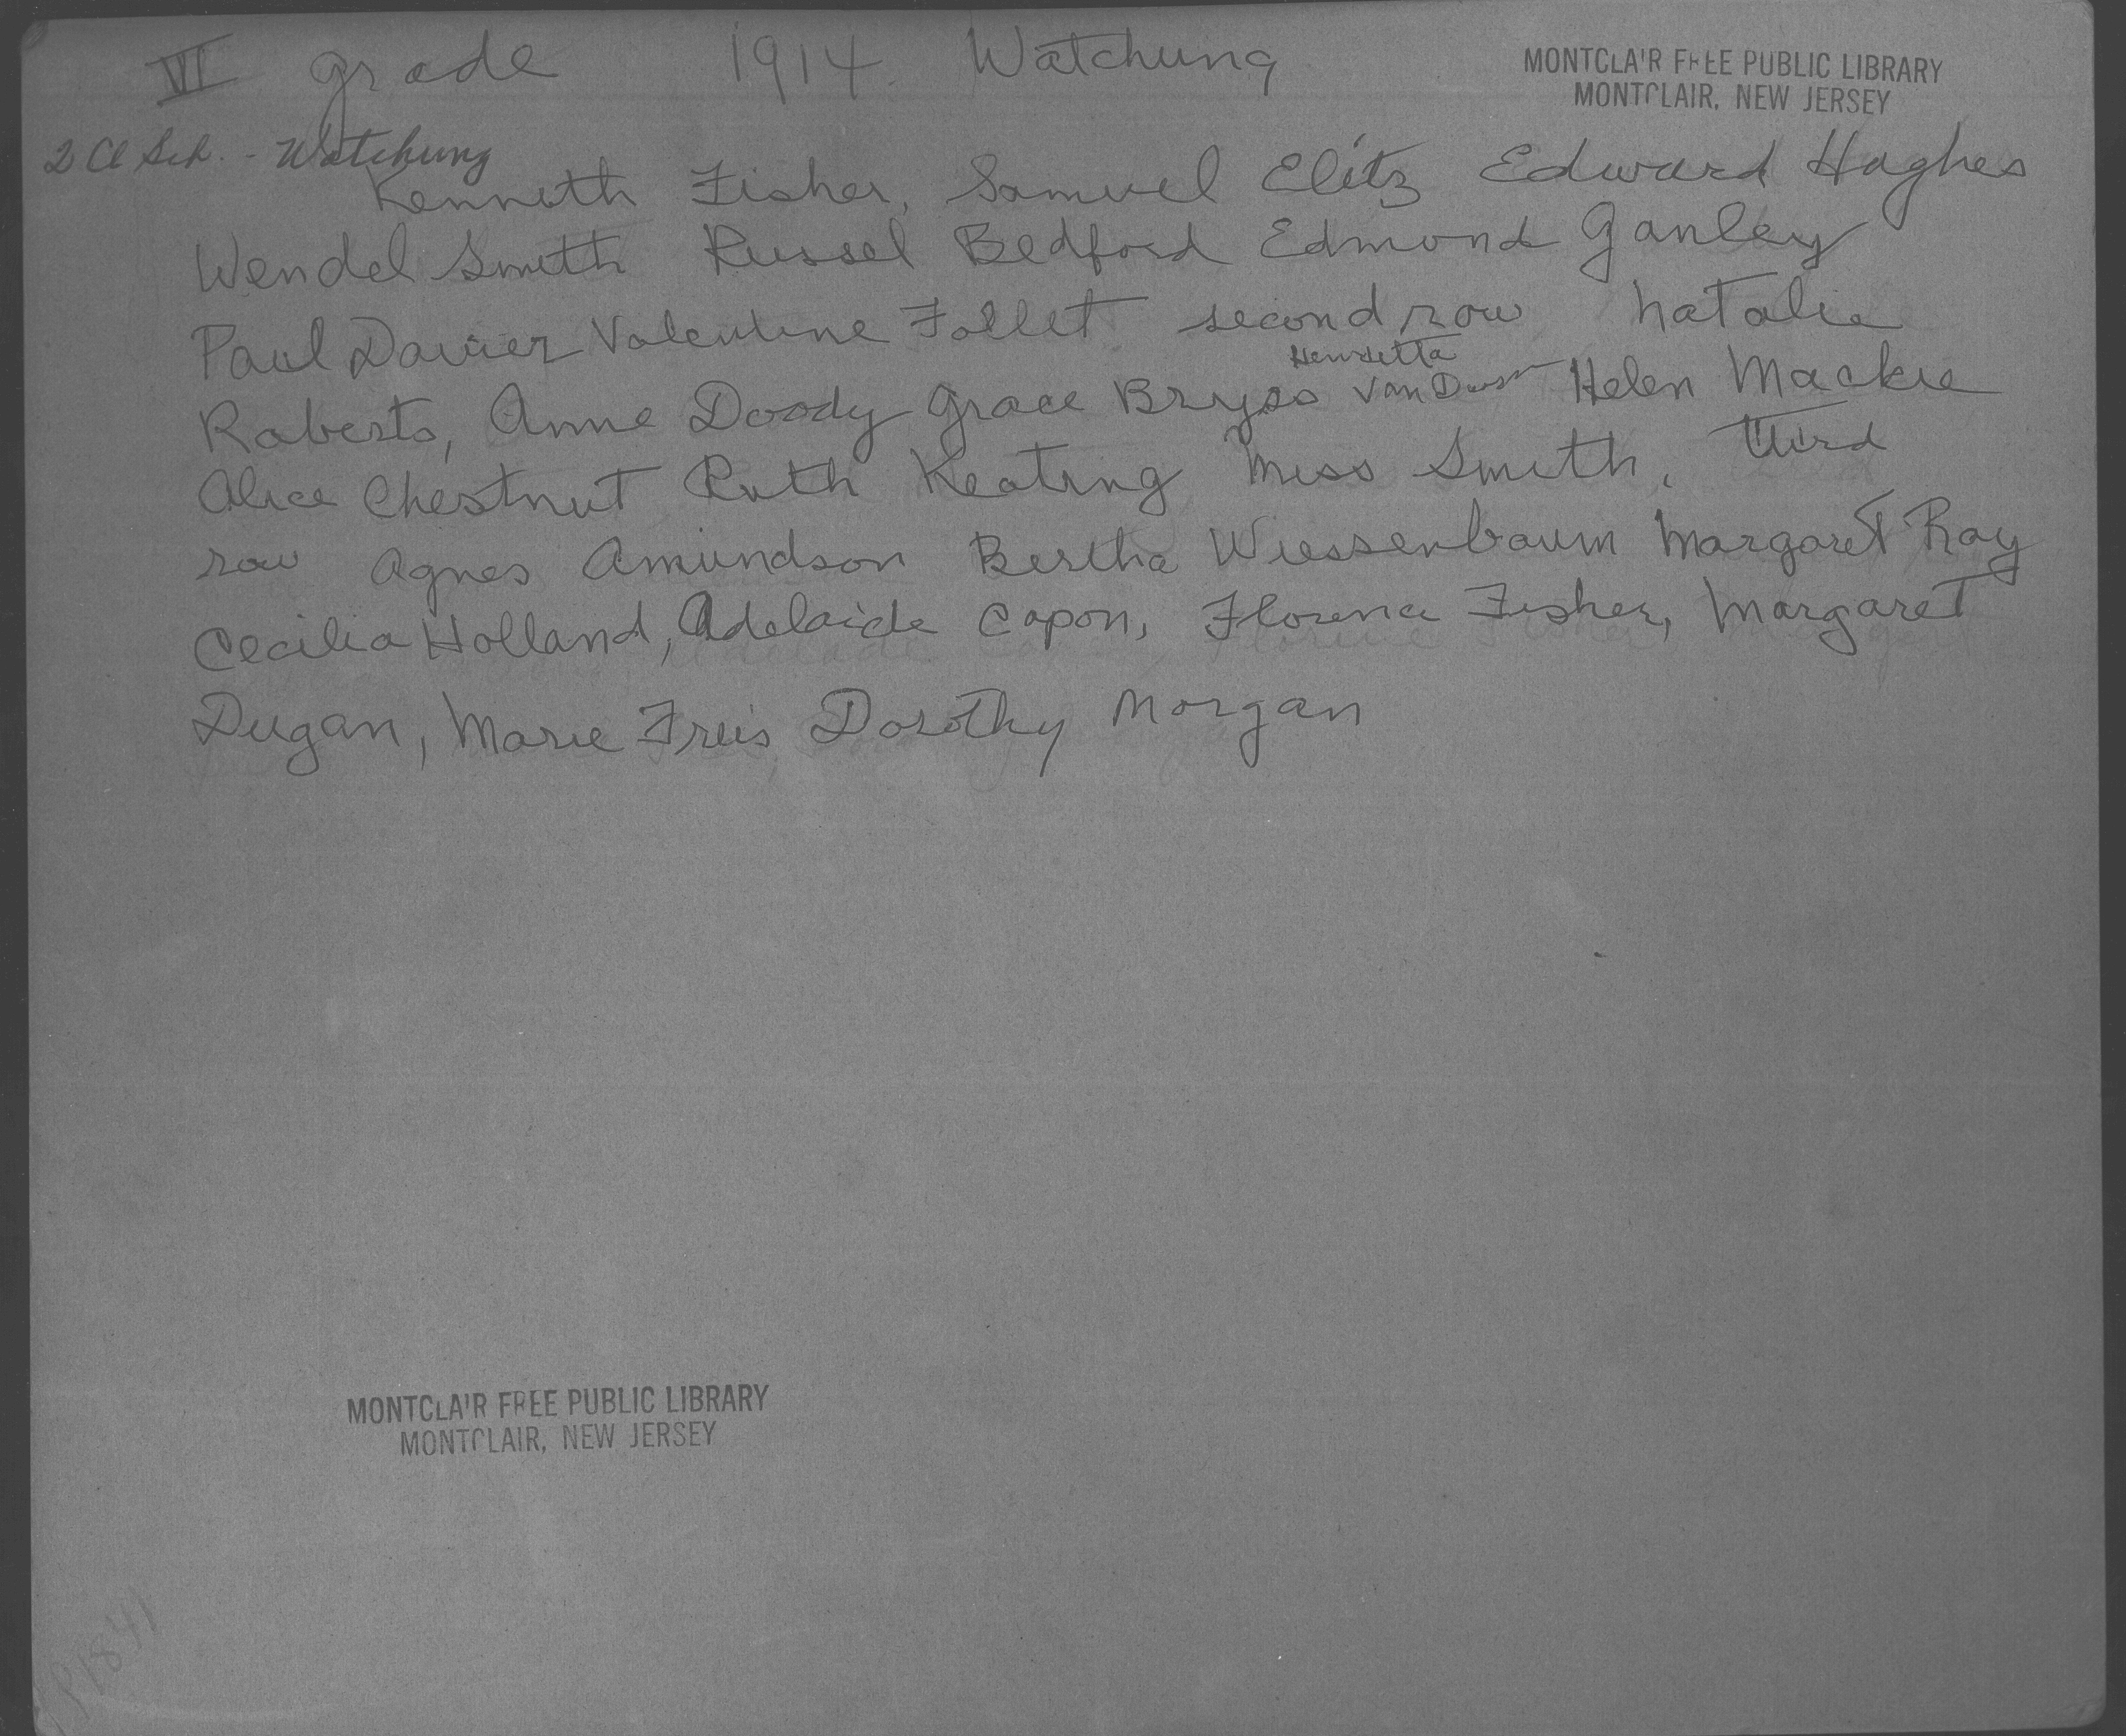 VI grade 1914 Watchung
MONTCLAIR FREE PUBLIC LIBRARY
MONTCLAIR, NEW JERSEY
2 Cl Sch. - Watchung
Kenneth Fisher, Samuel Elitz Edward Hughes
Wendel Smith Russel Bedford Edmond Ganley
Paul Davier Valentine Follet second row Natalie
Henrietta
Roberts, Anne Doody Grace Bryss Van Helen Mackie
Alice Chestnut Ruth Keating Miss Smith, third
row Agnes Amundson Bertha Wiessenbaum Margaret Ray
Cecilia Holland, Adelaide Capon, Florence Fisher, Margaret
Dugan, Marie Freis Dorothy Morgan
MONTCLAIR FREE PUBLIC LIBRARY
MONTCLAIR, NEW JERSEY